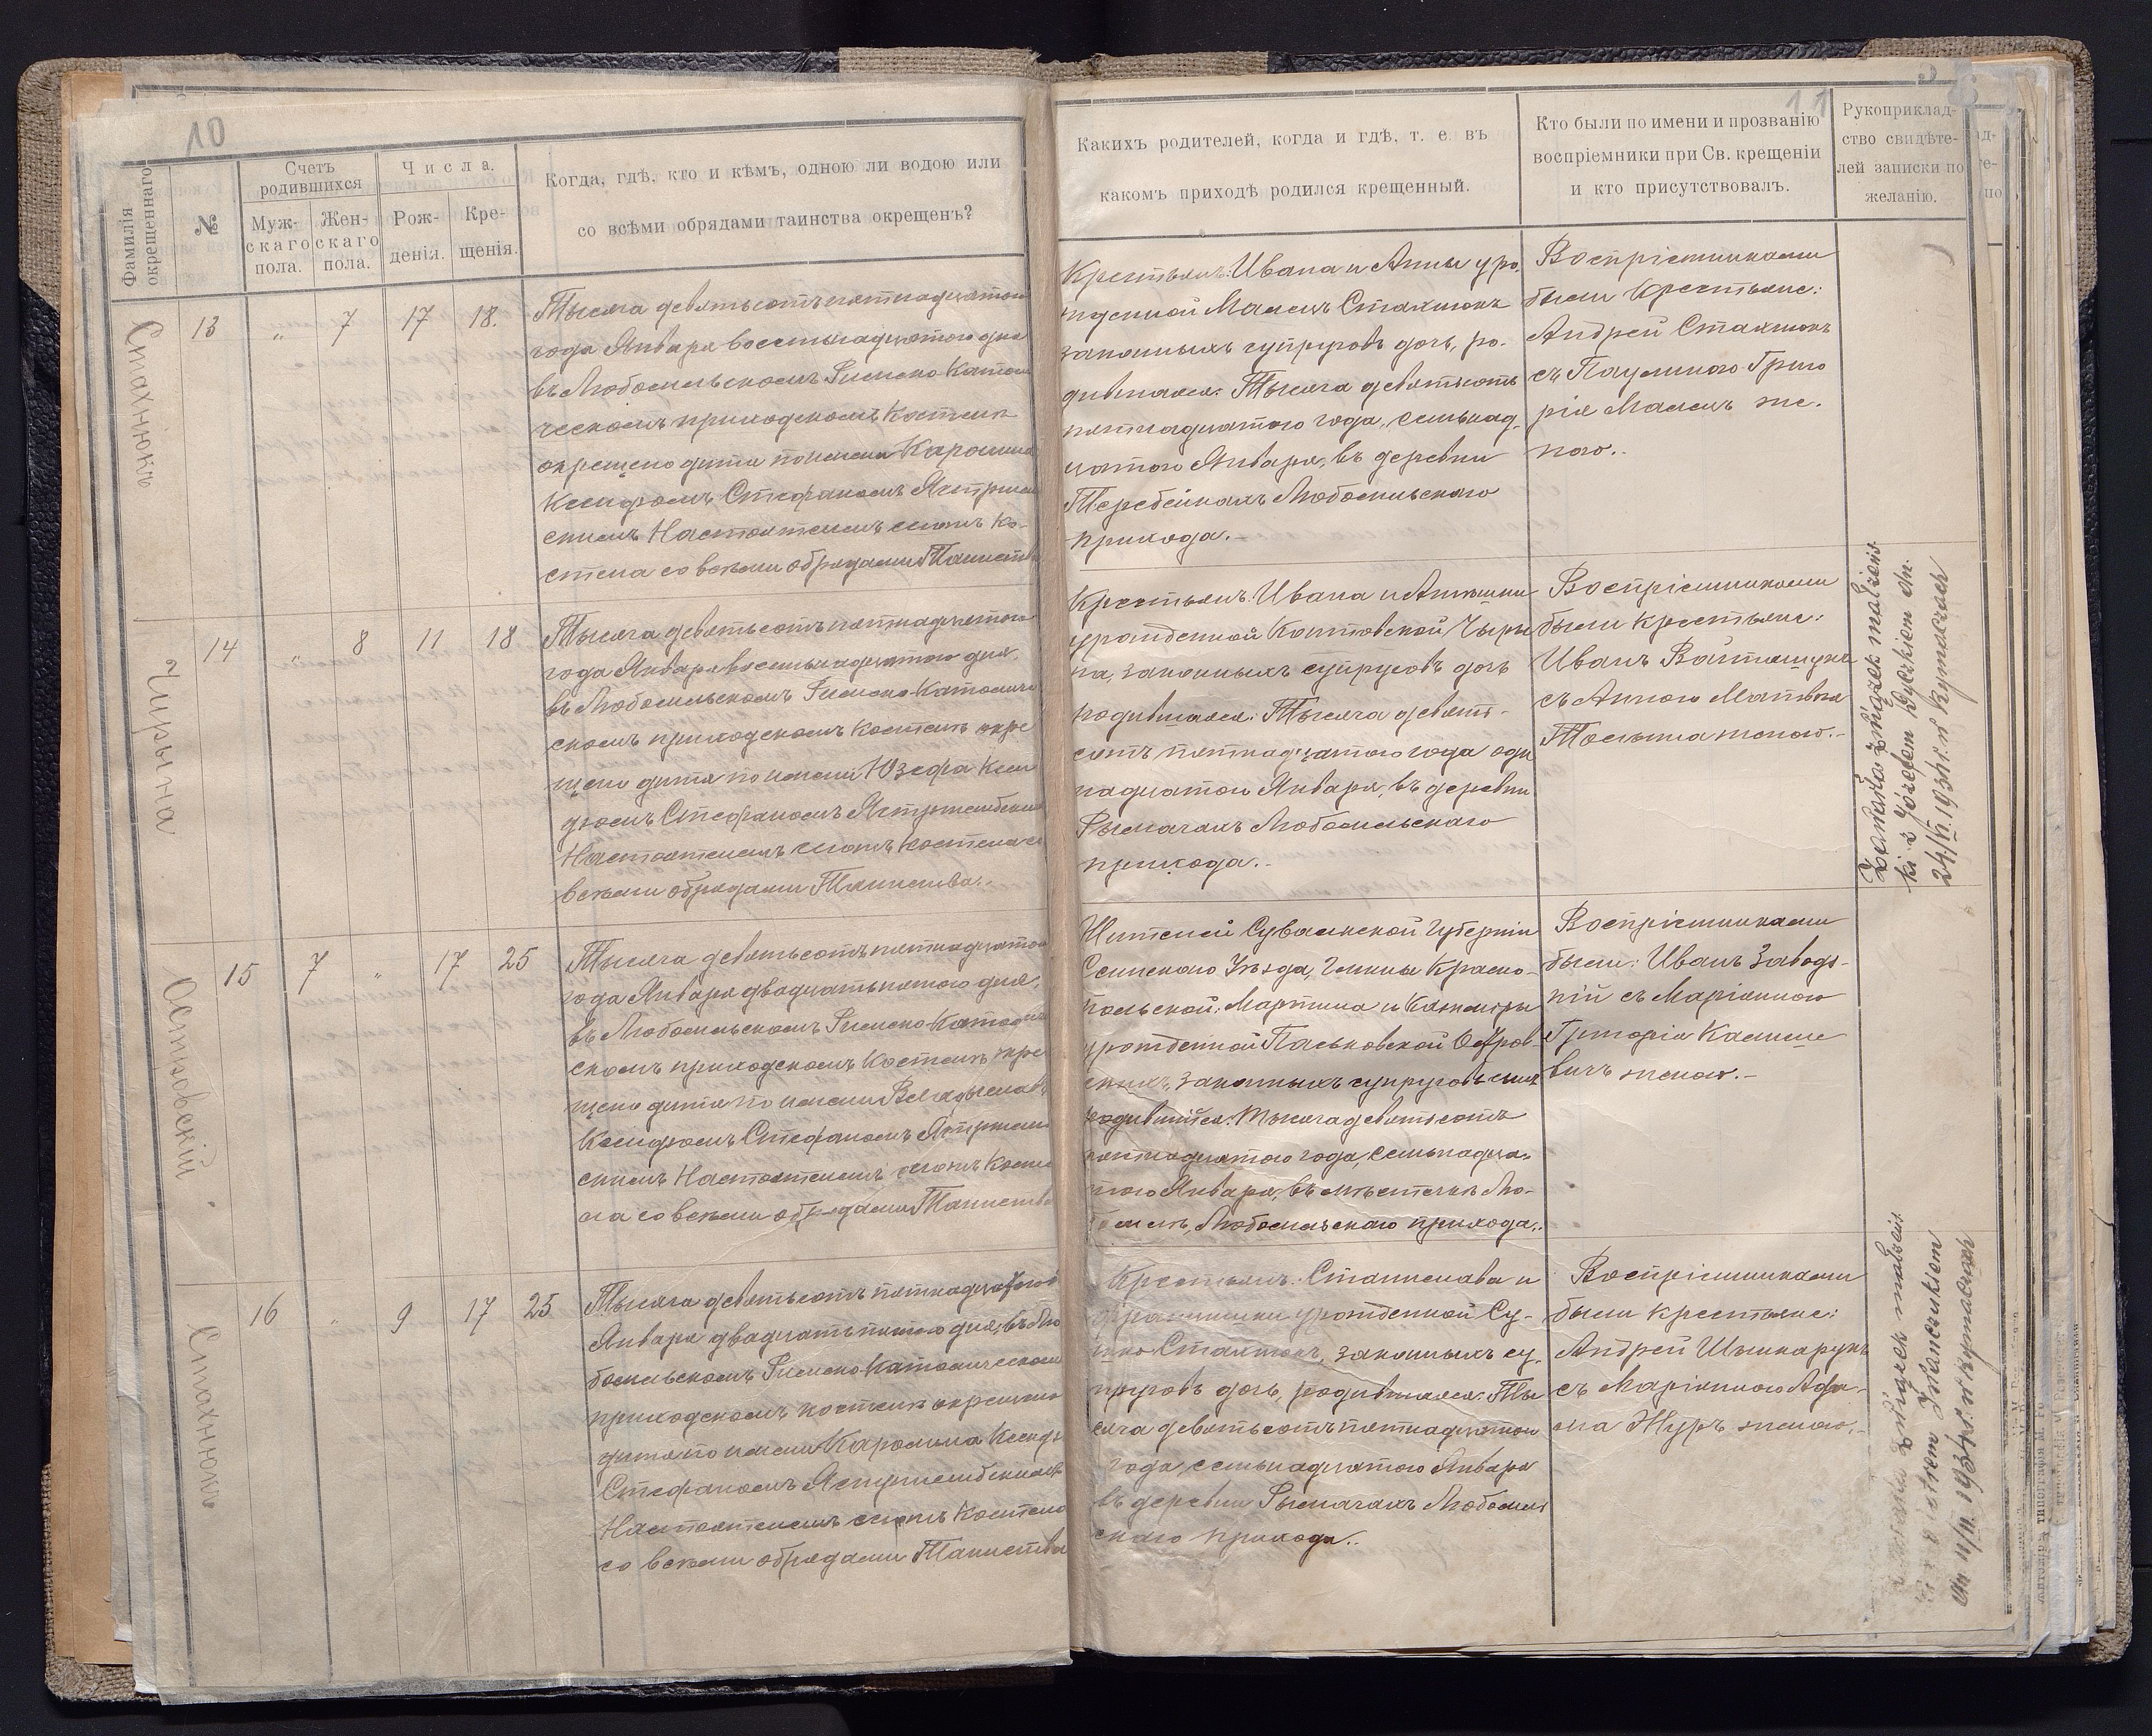 10
Фамилія окрещеннаго
№
Счетъ родившихся
Муж-
скаго
пола.
Жен-
скаго
пола.
Числа.
Рож-
денія.
Кре-
щенія.
Когда, гдѣ, кто и кѣмъ, одною ли водою или
со всѣми обрядами таинства окрещенъ?
Стахнюкъ
13 „ 7 17 18.
Тысяча девятьсотъ пятнадцатого
года Января восемнадцатого дня
въ Любомльскомъ Римско-Католи
ческомъ приходскомъ Костелѣ
окрещено дитя по имени Каролина
Ксендзомъ Стефаномъ Ястржем
скимъ Настоятелемъ сего Ко-
стела со всѣми обрядами Таинства
Чирына
14 „ 8 11 18
Тысяча девятьсотъ пятнадцатого
года Января восемнадцатого дня,
въ Любомльскомъ Римско-Католиче
скомъ приходскомъ Костелѣ окре
щено дитя по имени Юзефа Ксен
дзомъ Стефаномъ Ястржембским
Настоятелемъ сего Костела со
всѣми обрядами Таинства.
Островскій.
15 7 „ 17 25
Тысяча девятьсотъ пятнадцатого
года Января двадцать пятого дня,
въ Любомльскомъ Римско-Католиче
скомъ приходскомъ Костелѣ окре
щено дитя по имени Владыславъ
Ксендзомъ Стефаномъ Ястржем
скимъ Настоятелемъ сего Косте
ла со всѣми обрядами Таинства
Стахнюкъ
16 „ 9 17 25
Тысяча девятьсотъ пятнадцатого
Января двадцать пятого дня, въ Лю
бомльскомъ Римско-Католическомъ
приходскомъ костелѣ окрещено
дитя по имени Каролина Ксендз
Стефаномъ Ястржембскимъ
Настоятелемъ сего Костела
со всѣми обрядами Таинства
11
Какихъ родителей, когда и гдѣ, т. е. въ
какомъ приходѣ родился крещенный.
Кто были по имени и прозванію
воспріемники при Св. крещеніи
и кто присутствовалъ.
Рукоприклад-
ство свидѣте-
лей записки по
желанію.
Крестьянъ: Ивана и Анны уро-
жденной Стахнюкъ
законныхъ супруговъ дочь, ро-
дившаяся: Тысяча девятьсотъ
пятнадцатого года, семнад-
цатого Января, въ деревни
Теребейкахъ Любомльскаго
прихода.
Воспріемниками
были Крестьяне:
Андрей Стахнюкъ
съ Паулиною Григо
рія же-
ною.
Крестьянъ: Ивана и
урожденной Чыры
на, законныхъ супруговъ дочь
родившаяся: Тысяча девять-
сотъ пятнадцатого года оди
надцатого Января, въ деревни
Рымачахъ Любомльскаго
прихода.
Воспріемниками
были крестьяне:
Иванъ
съ Анною Матвѣя
женою.
Zawarła związek małżeńs
ki z Józefem
24/II. 193 r. w Rymaczach
Жителей Сувалкской Губерніи
Сейнскаго Уѣзда, Гмины Красно-
польской: Мартина и Казиміры
урожденной Паньковской Остров-
скихъ, законныхъ супруговъ сынъ
родившійся: Тысяча девятьсотъ
пятнадцатого года, семнадца-
того Января, въ мѣстечкѣ Лю-
бомлѣ, Любомльскаго прихода.
Воспріемниками
были: Иванъ Завод-
ній съ Маріанною
Григорія
вичъ женою.
Крестьянъ: Станислава и
Франциски урожденной Су-
Стахнюкъ, законныхъ су-
пруговъ дочь, родившаяся: Ты
сяча девятьсотъ пятнадцатого
года, семнадцатого Января
въ деревни Рымачахъ Любомль
скаго прихода.
Воспріемниками
были крестьяне:
Андрей Шынкарукъ
съ Маріанною Ада-
ма Журъ женою.
związek małżeńs
w Rymaczach